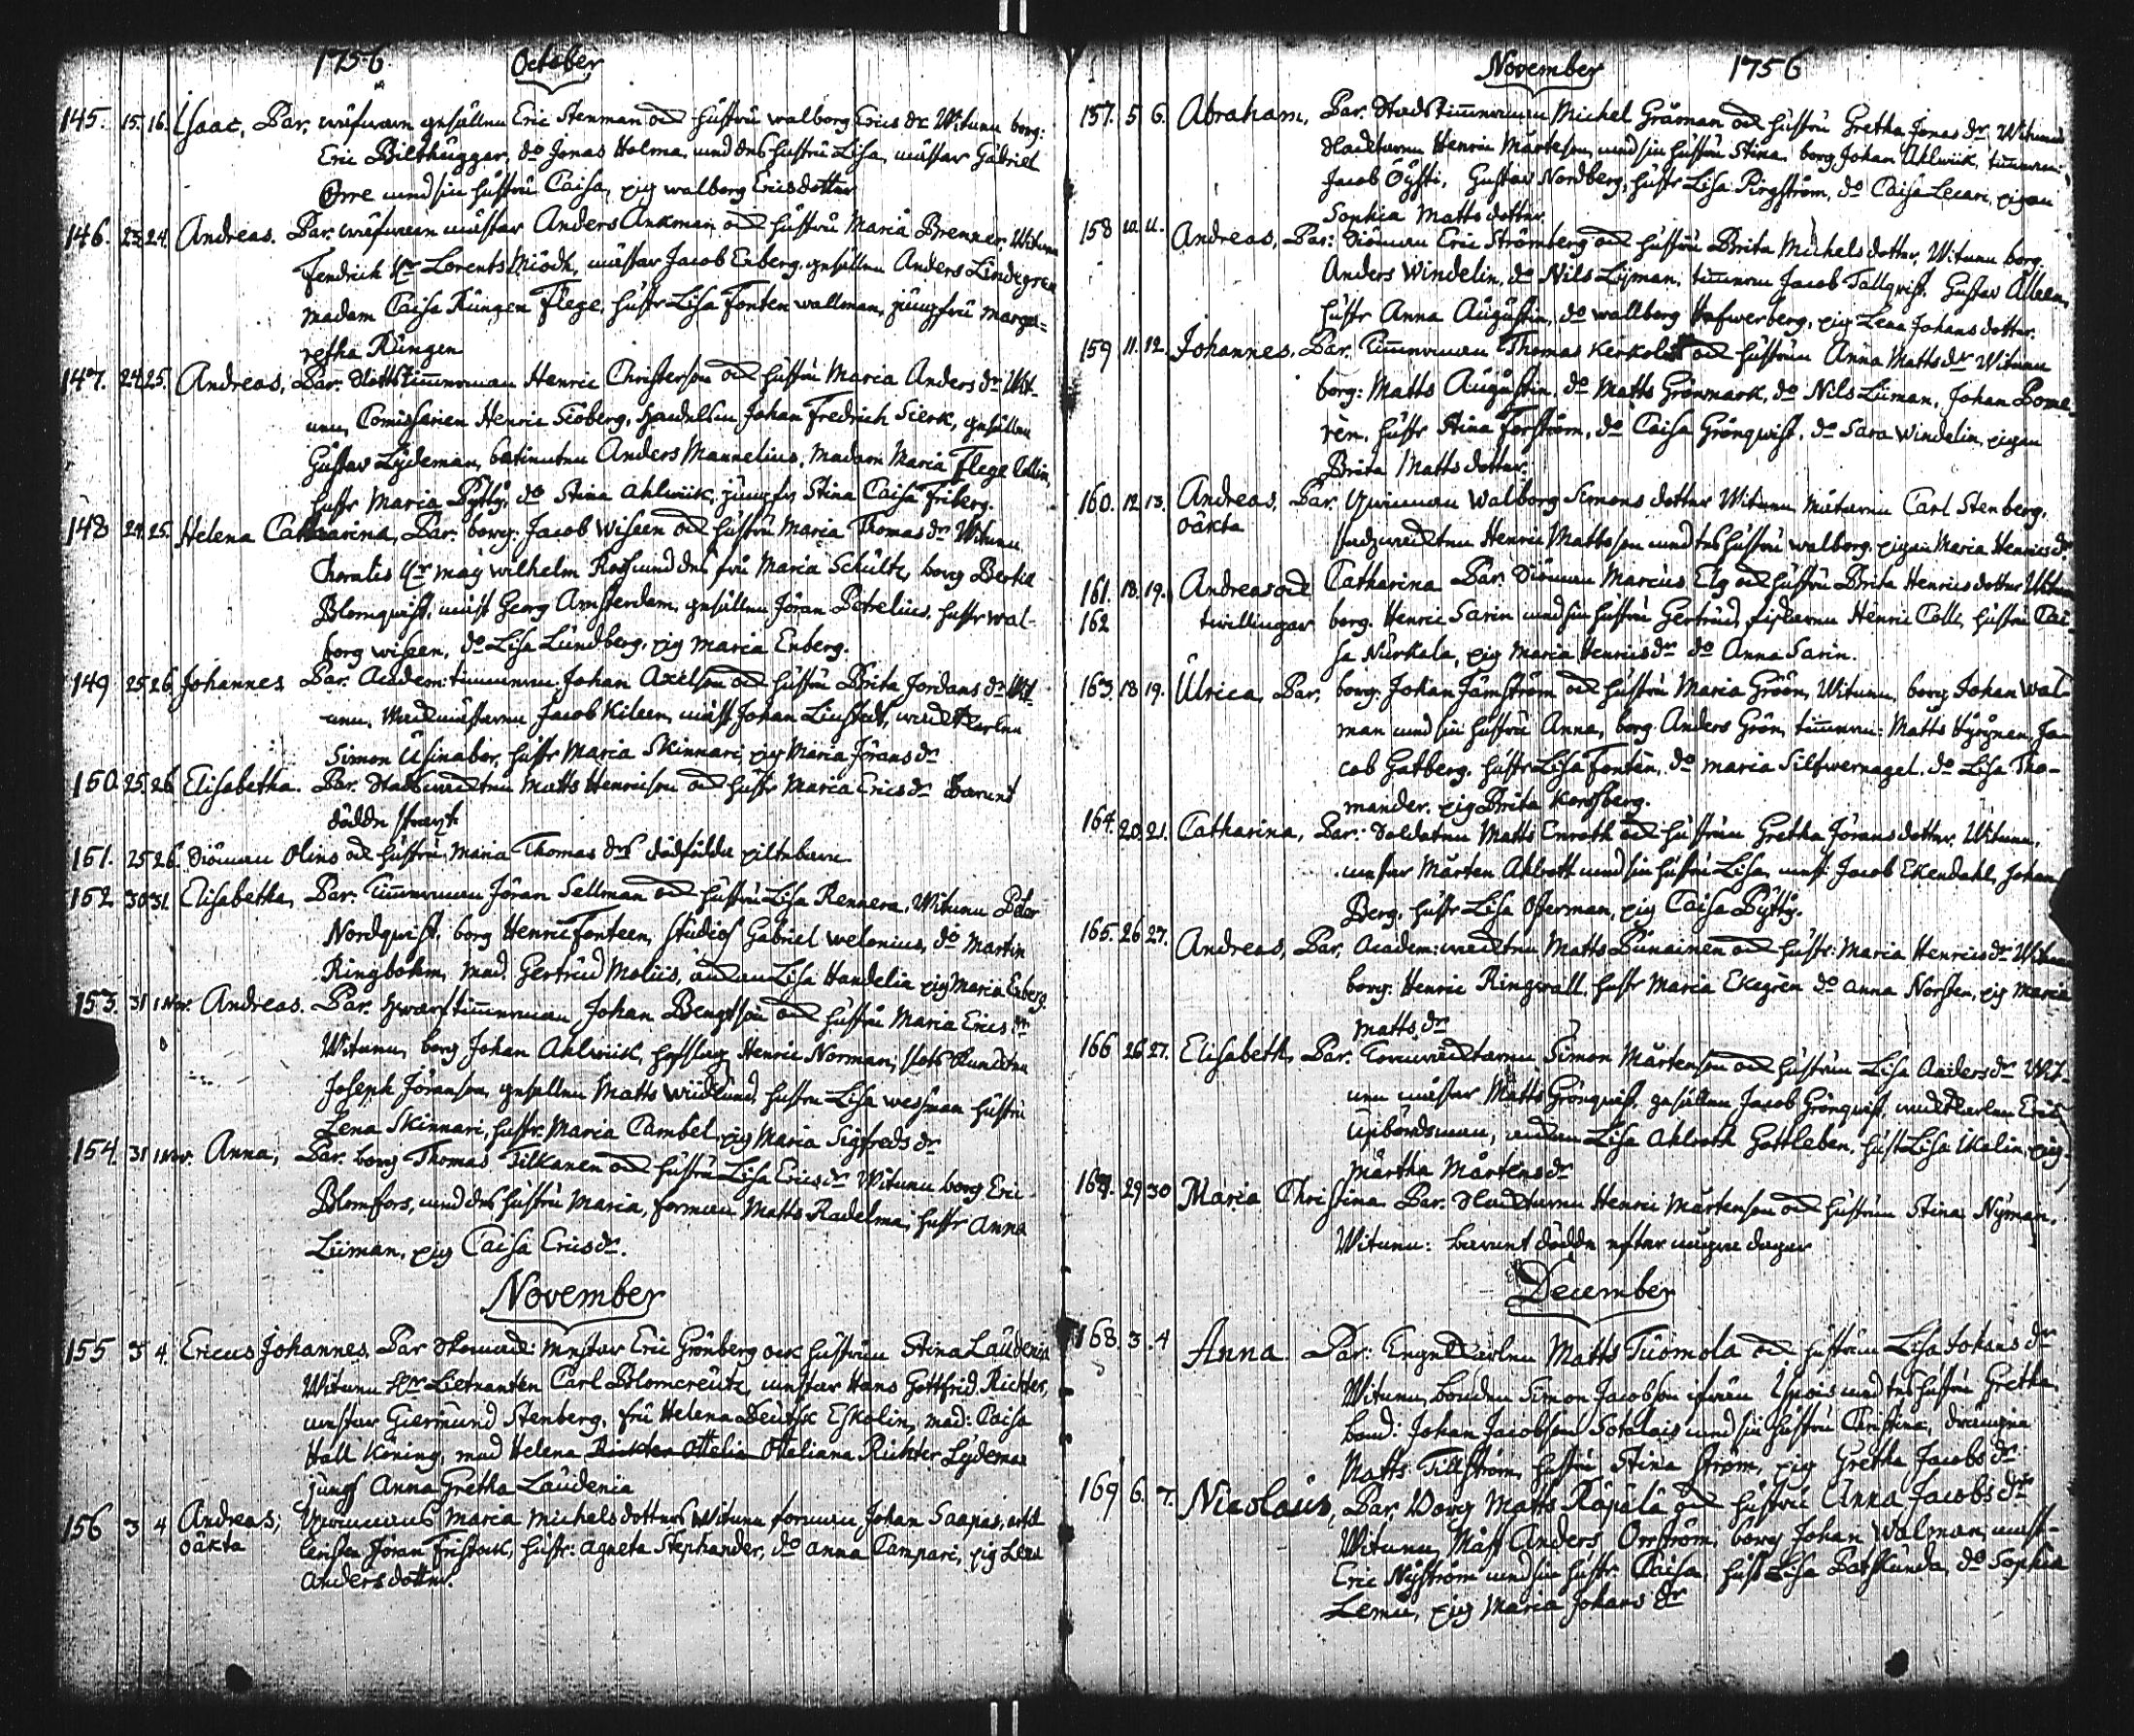 1756 October
145. 15. 16. Isaac, Par. gesällen Eric Stenman och hustru walborg Erics dr. Witnen borg:
Eric Bilthuggar, do Jonas Holma, med des hustru Lisa, mästar Gabriel
Orre med sin hustru Caisa, pig walborg Ericsdotter
146. 23. 24. Andreas. Par. mästar Anders Ankman och hustru Maria Brenner. Witnen
Fendrich Hr Lorents Miödh, mästar Jacob Enberg, gesällen Anders Lindegren
madam Caisa Rungen Flege, hustr Lisa Fonten wallman, jungfru marga-
retha Rungen
147. 24. 25. Andreas, Par. Slottstimmerman Henric Christerson och hustru Maria Anders dr. Wit-
nen, Comissarien Henric Siöberg, Handelsm Johan Fredrich Sierk, gesällen
Gustav Lydeman, betienten Anders Mannelius, madam Maria Flege Collin,
hustr Maria Pytty, do Stina Ahlwiik, jungfr Stina Caisa Friberg.
148 24. 25. Helena Catharina, Par. borg: Jacob Wiseen och hustru Maria Thomas dr. Witnen
Hr maj wilhelm med des fru Maria Schultz, borg Bertil
Blomqvist, mäst Georg Amsterdam, gesällen Jöran Petrelius, hustr wal-
borg wiseen, do Lisa Lundberg, pig maria Enberg.
149 25 26 Johannes Par. Academ: timmerm. Johan Axelson och hustru Brita Jordans dr. Wit-
nen, mästaren Jacob Kileen, mäst Johan Linstedt,
Simon Usinabor, hustr Maria Skinnari, pig Maria Jörans dr
150. 25. 26 Elisabetha. Par. Matts Henricson och hustr Maria Erics dr Barnet
dödde straxt
151. 25 26. Siöman Olins och hustru Maria Thomas drs dödfödde piltebarn
152 30 31. Elisabetha, Par. Timmerman Jöran Sellman och hustru Lisa Rennera. Witnen Peter
Nordqwist, borg Henric Fonteen, studios Gabriel welonius, do Martin
Ringbohm, mad. Gertrud Molius, Lisa Handelia pig Maria Enberg
153. 31 1. Nov. Andreas. Par. Hwarfstimmerman Johan Bengtson och hustru Maria Erics dr
Witnen, borg Johan Ahlwiik, Henric Norman,
Joseph Jöranson, gesällen Matts Wiidlund, hustru Lisa wessman hustru
Lena Skinnari, hustr. Maria Cambel, pig Maria Sigfreds dr
154. 31 1 Nov. Anna, Par. borg Thomas Tilkanen och hustru Lisa Erics dr Witnen borg Eric
Blomfors, med des hustru Maria, forman Matts Radelma, hustr Anna
Liiman, pig Caisa Erics dr.
November
155 3 4. Ericus Johannes, Par mestar Eric Grönberg ock hustrun Stina Laudenia
Witnen Hr Lieutnanten Carl Blomcreütz, mestar Hans Gottfrid Richter,
mestar Giermund Stenberg, fru Helena Eskolin, mad: Caisa
Hall Köning, mad Helena Rickter Ottelia Ottiliana Richter Lydeman
jungf Anna Gretha Laudenia
156 3 4 Andreas, Maria Michelsdotters Witnen forman Johan Saapas,
oäkta Jöran Fristock, hustr: Agneta Stephander, do Anna Campari, pig Lena
Andersdotter.
November 1756
157. 5 6. Abraham, Par. Stads timmerman Michel Gråman och hustru Gretha Jonas dr. Witnen
Henric Mårtenson, med sin hustru Stina. borg Johan Ahlwiik, timmerm:
Jacob Öysti, Gustav Nordberg, hustr Lisa Pirgström, do Caisa Lecari, pigan
Sophia Mattsdotter.
158 10. 11. Andreas, Par: Siöman Eric Strömberg och hustru Brita Michelsdotter, Witnen borg.
Anders Windelin, do Nils Liiman, timmerm Jacob Tallqvist, Gustav Alleen,
hustr Anna Augustin, do wallborg Hafwerberg, pig Lena Johansdotter.
159 11. 12. Johannes. Par. Timmerman Thomas och hustrun Anna Matts dr Witnen
borg: Matts Augustin, do Matts Grönmark, do Nils Liiman, Johan Bome-
ren, hustr Stina Forström, do Caisa Grönqwist, do Sara Windelin, pigan
Brita Mattsdotter.
160. 12 13. Andreas, Par. walborg Simonsdotter Witnen Carl Stenberg,
oäkta Henric Mattsson med des hustru walborg, pigan Maria Henrics dr
161. 18. 19. Andreas och Catharina Par. Siöman Marcus Elg och hustru Brita Henricsdotter Witnen
162 twillingar borg. Henric Sarin med sin hustru Gertrud, fiskaren Henric Colli, hustru Cai-
sa Nurkala, pig Maria Henrics dr do Anna Sarin.
163. 18 19. Ulrica, Par, borg. Johan Jämström och hustru Maria Gröön, Witnen, borg Johan Wal-
man med sin hustru Anna, borg. Anders Grön, timmerm: Matts Ja-
cob Gatberg. hustr Lisa Fonten, do maria Silfwernagel, do Lisa Tho-
mander, pig Brita Korsberg.
164. 20. 21. Catharina, Par: Soldaten Matts Enroth och hustrun Gretha Jöransdotter. Witnen,
mestar Mårten Ahlrott med sin hustru Lisa, mest. Jacob Ekendahl, Johan
Berg, hustr Lisa Osterman, pig Caisa Pytty.
165. 26 27. Andreas, Par, Academ: Matts Punainen och hustr: Maria Henrics dr Witnen
borg. Henric Ringwall, hustr Maria Ekegren do Anna Norsten, pig Maria
Matts dr
166 26 27. Elisabeth, Par. Simon Mårtenson och hustrun Lisa Anders dr Wit-
nen mestar Matts Grönqwist, gesällen Jacob Grönqwist, Eric
Upbördsman, Lisa Ahlroth Gottleben, hust Lisa Ikalin, pig.
Märtha Mårtens dr
167. 29 30 Maria Christina Par. Henric Mårtenson och hustrun Stina Nyman.
Witnen: barnet dödde efter någre dagar
December
168. 3. 4 Anna. Par: Matts Tuomola och hustrun Lisa Johans dr
Witnen, bonden Simon Jacobson ifrån med des hustru Gretha,
bond: Johan Jacobson Sotalais med sin hustru Christina, drengen
Matts Tillström, hustru Stina Ström, pig Gretha Jacobs dr
169 6. 7. Nicolaus, Par, borg Matts Rapala och hustru Anna Jacobs dr
Witnen, Mäst Anders Orrström, borg Johan Walman, mest-
Eric Nyström med sin hustr. Caisa, hust Lisa do Sophia
Lemu, pig Maria Johans dr